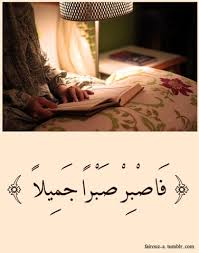 ﴿ فَاصْبِرْ صَبْرًا جَمِيلًا ﴾
fairouz-a.tumblr.com